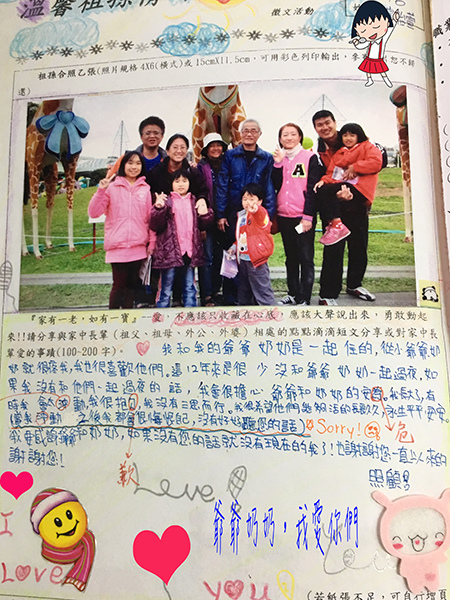 溫馨祖孫情
徵文活動
祖孫合照乙張(照片規格4X6(橫式)或15cmX11.5cm,可用彩色列印輸出,
還)
『家有一老,如有一寶』─愛,不應該只收藏在心底,應該大聲說出來,勇敢動起
來!!請分享與家中長輩(祖父、祖母、外公、外婆)相處的點點滴滴短文分享或對家中長
輩愛的事蹟(100-200字)。 我和我的爺爺奶奶是一起住的,從小爺爺奶
奶就很疼我,我也很喜歡他們,這12年來是很少沒和爺爺奶奶一起過夜,如
果我沒有和他們一起過夜的話,我會很擔心爺爺和奶奶的安 我長大了,有
時我 動,我很抱 我沒有三思而行,我很希望他們 平平安安。
之後我都會很 自己,沒有好好聽您的話)Sorry! 危
我要感謝爺爺和奶奶,如果沒有您的話就沒有現在的我了!也謝謝您一直以來的
謝謝您! 歉 照顧
Love
爺爺奶奶,我愛你們
I
Love
you
(若紙張不足,可自行增頁